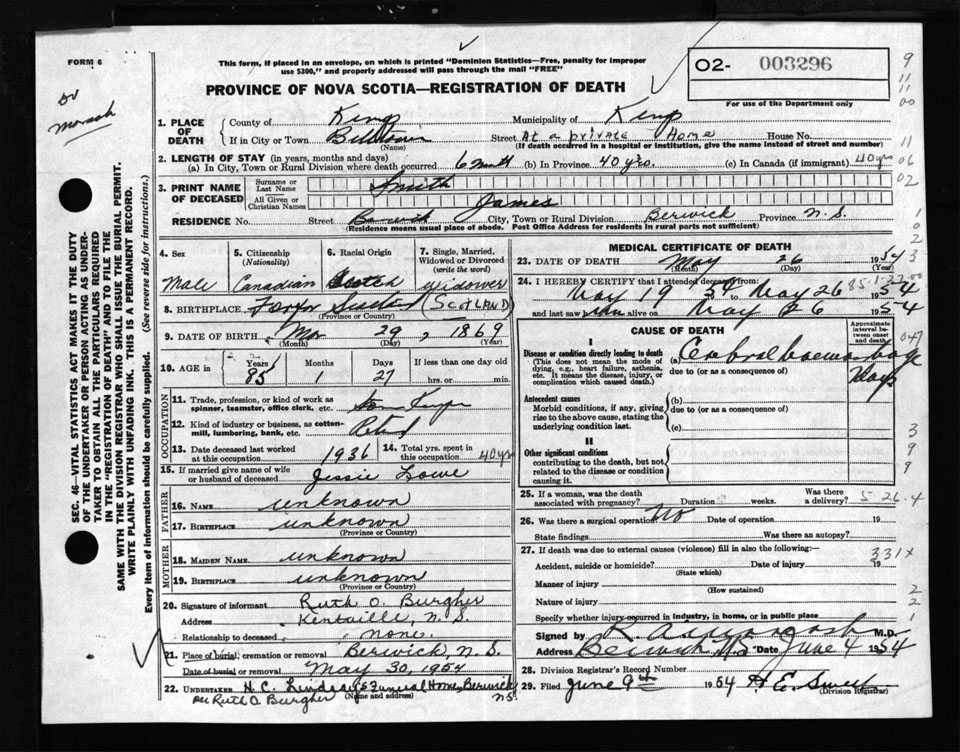 FORM 6
This form, if placed in an envelope, on which is printed "Dominion Statistics—Free, penalty for improper
use $300," and properly addressed will pass through the mail "FREE"
PROVINCE OF NOVA SCOTIA—REGISTRATION OF DEATH
O2- 003296
For use of the Department only
Dr
SEC. 46—VITAL STATISTICS ACT MAKES IT THE DUTY
OF THE UNDERTAKER OR PERSON ACTING AS UNDER-
TAKER TO OBTAIN ALL THE PARTICULARS REQUIRED
IN THE "REGISTRATION OF DEATH" AND TO FILE THE
SAME WITH THE DIVISION REGISTRAR WHO SHALL ISSUE THE BURIAL PERMIT.
WRITE PLAINLY WITH UNFADING INK. THIS IS A PERMANENT RECORD.
Every item of information should be carefully supplied. (See reverse side for instructions.)
1. PLACE OF DEATH
County of Kings Municipality of Kings
If in City or Town Street At a private Home House No.
(Name) (If death occurred in a hospital or institution, give the name instead of street and number)
2. LENGTH OF STAY (in years, months and days)
(a) In City, Town or Rural Division where death occurred 6 month (b) In Province 40 yrs. (c) In Canada (if immigrant) 40 yrs
3. PRINT NAME OF DECEASED
Surname or Last Name Smith
All Given or Christian Names James
RESIDENCE No. Street Berwick City, Town or Rural Division Berwick Province N. S.
(Residence means usual place of abode. Post Office Address for residents in rural parts not sufficient)
4. Sex
Male
5. Citizenship
(Nationality)
Canadian
6. Racial Origin
Scotch
7. Single, Married,
Widowed or Divorced
(write the word)
widower
8. BIRTHPLACE (SCOTLAND)
(Province or Country)
9. DATE OF BIRTH Mar 29, 1869
(Month) (Day) (Year)
10. AGE in Years 85 Months 1 Days 27 If less than one day old
hrs. or min.
OCCUPATION
11. Trade, profession, or kind of work as
spinner, teamster, office clerk, etc.
12. Kind of industry or business, as cotton-
mill, lumbering, bank, etc. Retired
13. Date deceased last worked
at this occupation 1936
14. Total yrs. spent in
this occupation 40 yrs
15. If married give name of wife
or husband of deceased Jessie Lowe
FATHER
16. NAME unknown
17. BIRTHPLACE unknown
(Province or Country)
MOTHER
18. MAIDEN NAME unknown
19. BIRTHPLACE unknown
(Province or Country)
20. Signature of informant Ruth O. Burgher
Address Kentville, N. S.
Relationship to deceased none.
21. Place of burial, cremation or removal Berwick, N. S.
Date of burial or removal May 30, 1954
22. UNDERTAKER H. C. Lindsay's Funeral Home, Berwick
(Name and address) N.S.
per Ruth O. Burgher
MEDICAL CERTIFICATE OF DEATH
23. DATE OF DEATH May 26 1954
(Month) (Day) (Year)
24. I HEREBY CERTIFY that I attended deceased from:
May 19 54 to May 26 1954
and last saw him alive on May 26 1954
CAUSE OF DEATH
Approximate
interval be-
tween onset
and death
I
Disease or condition directly leading to death
(This does not mean the mode of
dying, e.g., heart failure, asthenia,
etc. It means the disease, injury, or
complication which caused death.)
(a) Cerebral haemorrhage
due to (or as a consequence of)
7 days
Antecedent causes
Morbid conditions, if any, giving
rise to the above cause, stating the
underlying condition last.
(b)
due to (or as a consequence of)
(c)
II
Other significant conditions
contributing to the death, but not
related to the disease or condition
causing it.
25. If a woman, was the death
associated with pregnancy? Duration weeks. Was there
a delivery? 5 26.4
26. Was there a surgical operation? No Date of operation 19
State findings Was there an autopsy?
27. If death was due to external causes (violence) fill in also the following:—
331X
Accident, suicide or homicide? Date of injury 19
(State which)
Manner of injury
(How sustained)
Nature of injury
Specify whether injury occurred in industry, in home, or in public place
Signed by M.D.
Address Berwick NS Date June 4 1954
28. Division Registrar's Record Number
29. Filed June 9th 1954
(Division Registrar)
9
11
11
00
11
06
02
1
0
2
3
047
3
9
9
2
2
1